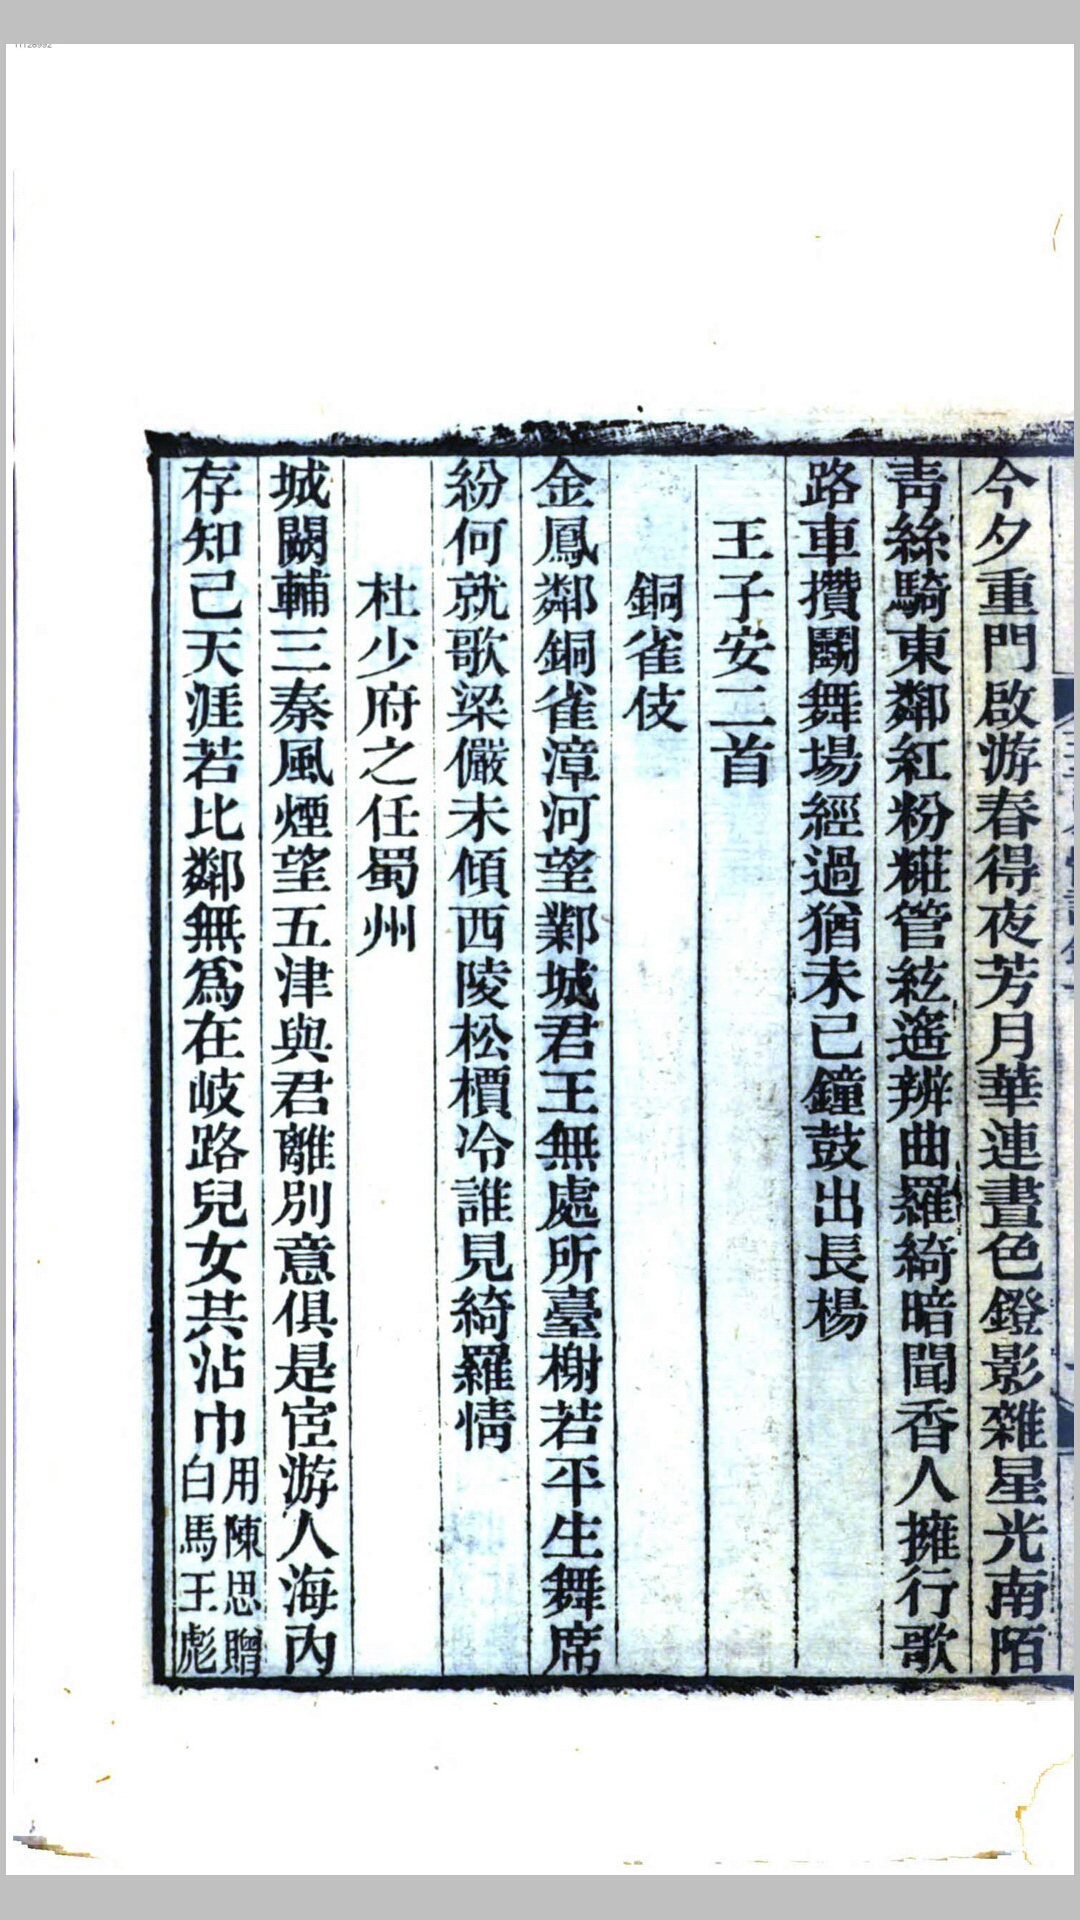 今夕重門啟游春得夜芳月華連晝色鐙影雜星光南陌
青絲騎東鄰紅粉糚管絃遙辨曲羅綺暗聞香人擁行歌
路車攢鬬舞場經過猶未已鐘鼓出長楊
王子安二首
銅雀伎
金鳳鄰銅雀漳河望鄴城君王無處所臺榭若平生舞席
紛何就歌梁儼未傾西陵松檟冷誰見綺羅情
杜少府之任蜀州
城闕輔三秦風煙望五津與君離別意俱是宦游人海內
存知己天涯若比鄰無為在岐路兒女共沾巾用陳思贈
白馬王彪